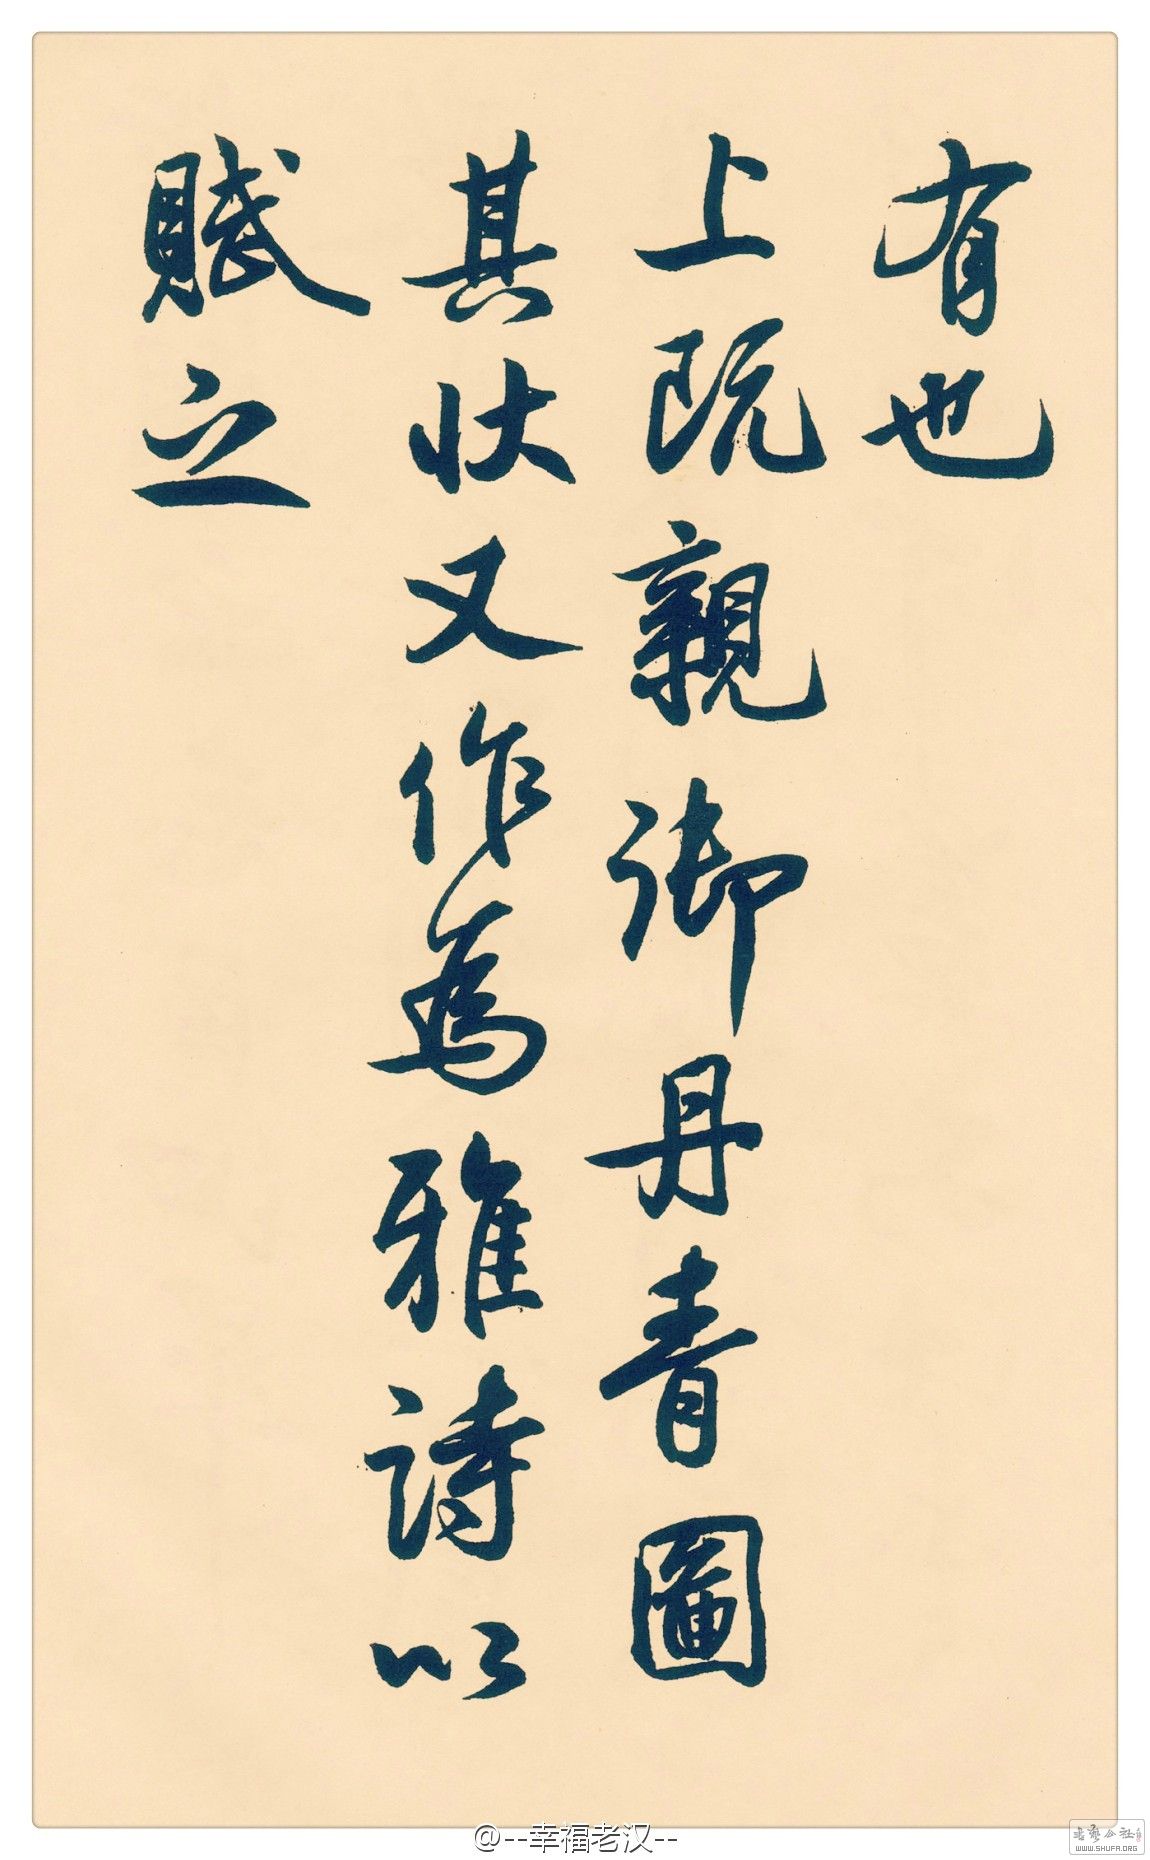 有也
上既親御丹青圖
其狀又作為雅詩以
賦之
@--幸福老汉--
书法公社
WWW.SHUFA.ORG